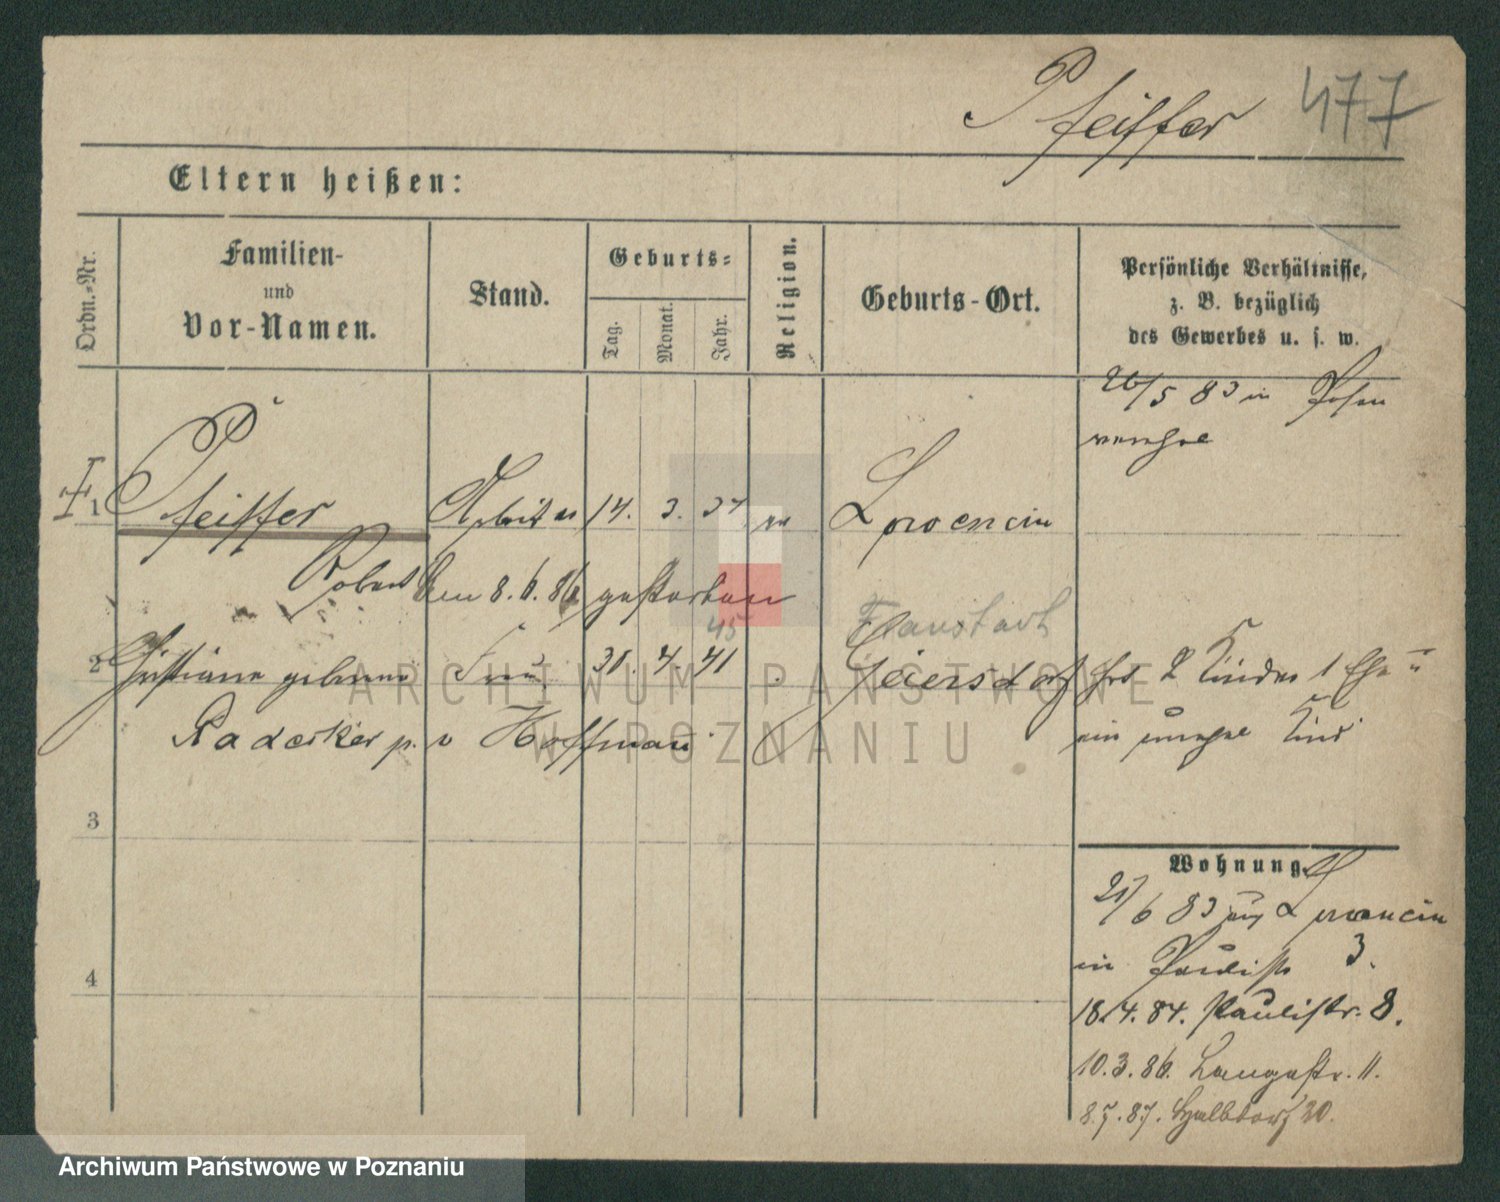 Pfeiffer 477
Eltern heißen:
Ordn.-Nr.
Familien-
und
Vor-Namen.
Stand.
Geburts-
Tag.
Monat.
Jahr.
Religion.
Geburts-Ort.
Persönliche Verhältnisse,
z. B. bezüglich
des Gewerbes u. s. w.
26/5 83 in Posen
1 Pfeiffer Arbeiter 14. 3. 37 ev
Robert am 8.6.86 gestorben
45
Faustadt
2 geborene Frau 31. 4. 41 Geiersdorf 2 Kinder 1 Ehe u
Radecker p. v Hoffman ein Kind
3
Wohnung.
21/6 83 aus
in Paulistr 3.
4
18.4.84. Paulistr. 8.
10.3.86. Langestr. 11.
8.7.87. Halbdorf 20.
ARCHIWUM PAŃSTWOWE
W POZNANIU
Archiwum Państwowe w Poznaniu